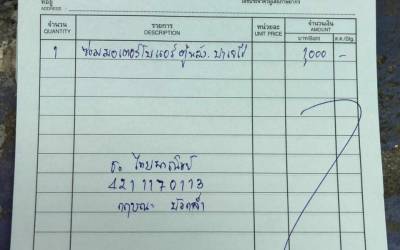 ที่อยู่
ADDRESS
เลขประจำตัวผู้เสียภาษีอากร
จำนวน รายการ หน่วยละ จำนวนเงิน
QUANTITY DESCRIPTION UNIT PRICE AMOUNT
บาท/Baht ส.ต./Stg.
1 ซ่อมมอเตอร์โบเออร์ตู้หลัง.ปาเจโร่ 1,000 -
ธ. ไทยพาณิชย์
4211170113
กฤษณะ